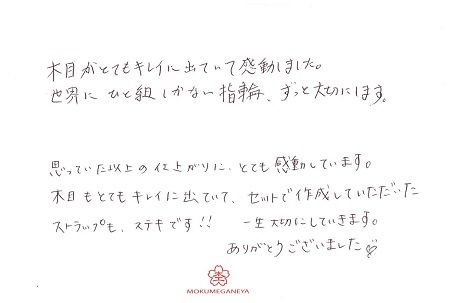 木目がとてもキレイに出ていて感動しました。
世界にひと組しかない指輪、ずっと大切にします。
思っていた以上の仕上がりに、とても感動しています。
木目もとてもキレイに出ていて、セットで作成していただいた
ストラップも、ステキです!! 一生大切にしていきます。
ありがとうございました♡
MOKUMEGANEYA